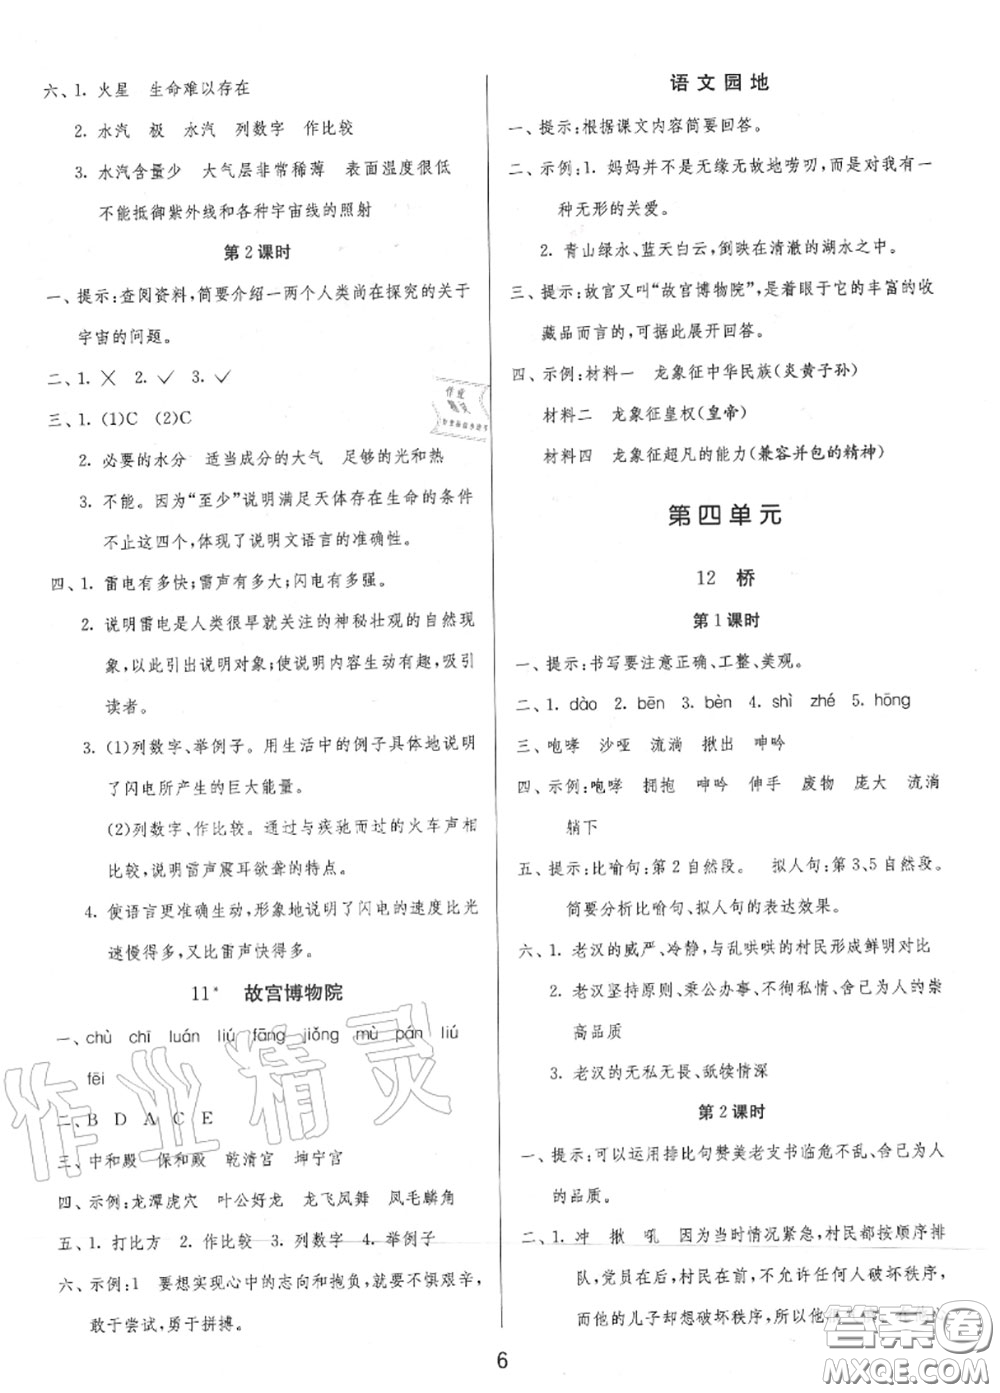 六、1. 火星　生命难以存在
2. 水汽　极　水汽　列数字　作比较
3. 水汽含量少　大气层非常稀薄　表面温度很低
不能抵御紫外线和各种宇宙线的照射
第 2 课时
一、提示:查阅资料,简要介绍一两个人类尚在探究的关于
宇宙的问题。
二、1. ✕　2. ✓　3. ✓
三、1. (1)C　(2)C
2. 必要的水分　适当成分的大气　足够的光和热
3. 不能。因为“至少”说明满足天体存在生命的条件
不止这四个,体现了说明文语言的准确性。
四、1. 雷电有多快;雷声有多大;闪电有多强。
2. 说明雷电是人类很早就关注的神秘壮观的自然现
象,以此引出说明对象;使说明内容生动有趣,吸引
读者。
3. (1)列数字、举例子。用生活中的例子具体地说明
了闪电所产生的巨大能量。
(2)列数字、作比较。通过与疾驰而过的火车声相
比较,说明雷声震耳欲聋的特点。
4. 使语言更准确生动,形象地说明了闪电的速度比光
速慢得多,又比雷声快得多。
11* 故宫博物院
一、chù　chī　luán　liú　fāng　jiǒng　mù　pán　liú
fēi
二、B　D　A　C　E
三、中和殿　保和殿　乾清宫　坤宁宫
四、示例:龙潭虎穴　叶公好龙　龙飞凤舞　凤毛麟角
五、1. 打比方　2. 作比较　3. 列数字　4. 举例子
六、示例:1　要想实现心中的志向和抱负,就要不惧艰辛,
敢于尝试,勇于拼搏。
语文园地
一、提示:根据课文内容简要回答。
二、示例:1. 妈妈并不是无缘无故地唠叨,而是对我有一
种无形的关爱。
2. 青山绿水、蓝天白云,倒映在清澈的湖水之中。
三、提示:故宫又叫“故宫博物院”,是着眼于它的丰富的收
藏品而言的,可据此展开回答。
四、示例:材料一　龙象征中华民族(炎黄子孙)
材料二　龙象征皇权(皇帝)
材料四　龙象征超凡的能力(兼容并包的精神)
第四单元
12　桥
第 1 课时
一、提示:书写要注意正确、工整、美观。
二、1. dào　2. bēn　3. bèn　4. shì　zhé　5. hōng
三、咆哮　沙哑　流淌　揪出　呻吟
四、示例:咆哮　拥抱　呻吟　伸手　废物　庞大　流淌
躺下
五、提示:比喻句:第 2 自然段。　拟人句:第 3、5 自然段。
简要分析比喻句、拟人句的表达效果。
六、1. 老汉的威严、冷静,与乱哄哄的村民形成鲜明对比
2. 老汉坚持原则、秉公办事、不徇私情、舍己为人的崇
高品质
3. 老汉的无私无畏、舐犊情深
第 2 课时
一、提示:可以运用排比句赞美老支书临危不乱、舍己为人
的品质。
二、1. 冲　揪　吼　因为当时情况紧急,村民都按顺序排
队,党员在后,村民在前,不允许任何人破坏秩序,
而他的儿子却想破坏秩序,所以他
6
作业精灵
答案卷
MXQE.COM